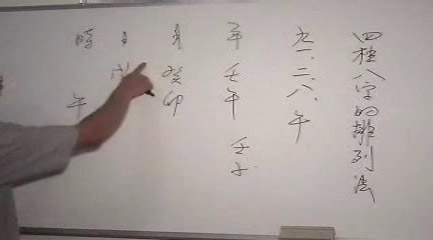 四柱八字的排列法
九一.二.八.午
年 壬午 壬子
月 癸卯
日
時 午